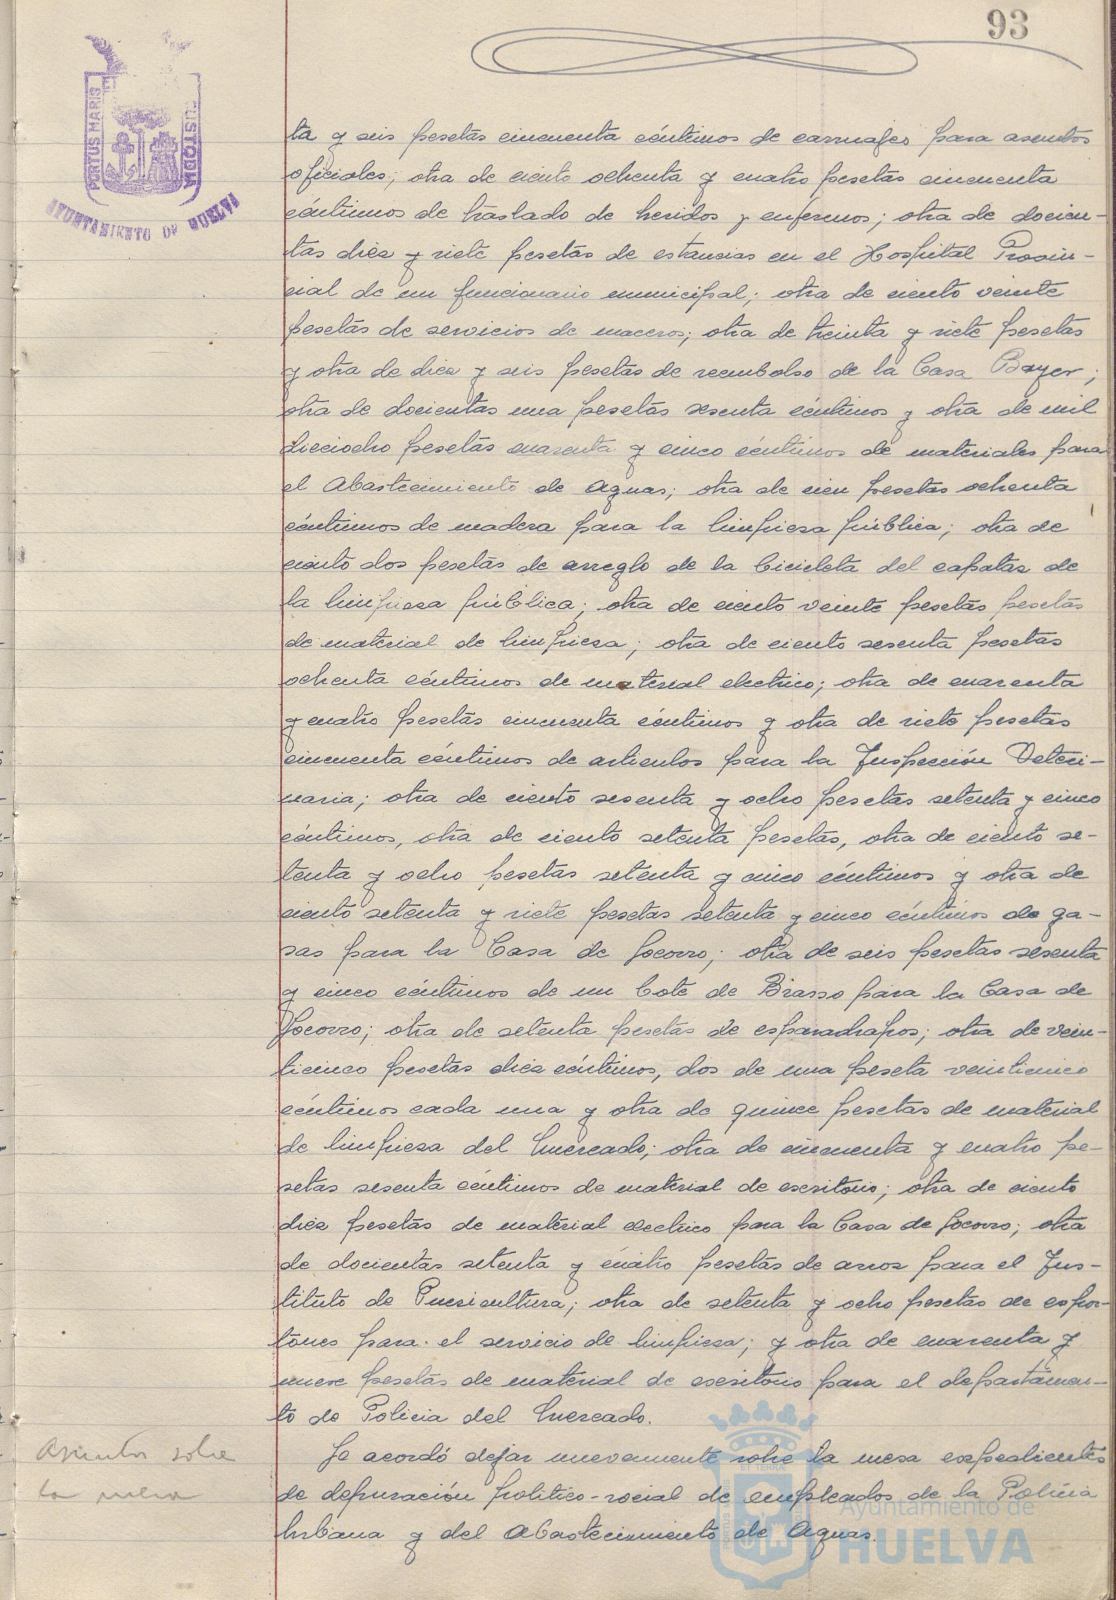 93
PORTUS MARIS
CUSTODIA
AYUNTAMIENTO DE HUELVA
ta y seis pesetas cincuenta céntimos de carruajes para asuntos
oficiales; otra de ciento ochenta y cuatro pesetas cincuenta
céntimos de traslado de heridos y enfermos; otra de docien-
tas diez y siete pesetas de estancias en el Hospital Provin-
cial de un funcionario municipal; otra de ciento veinte
pesetas de servicios de maceros; otra de treinta y siete pesetas
y otra de diez y seis pesetas de reembolso de la Casa Bayer;
otra de docientas una pesetas sesenta céntimos y otra de mil
dieciocho pesetas cuarenta y cinco céntimos de materiales para
el Abastecimiento de Aguas; otra de cien pesetas ochenta
céntimos de madera para la limpieza pública; otra de
ciento dos pesetas de arreglo de la bicicleta del capataz de
la limpieza pública; otra de ciento veinte pesetas pesetas
de material de limpieza; otra de ciento sesenta pesetas
ochenta céntimos de material electrico; otra de cuarenta
y cuatro pesetas cincuenta céntimos y otra de siete pesetas
cincuenta céntimos de articulos para la Inspección Veteri-
naria; otra de ciento sesenta y ocho pesetas setenta y cinco
céntimos, otra de ciento setenta pesetas, otra de ciento se-
tenta y ocho pesetas setenta y cinco céntimos y otra de
ciento setenta y siete pesetas setenta y cinco céntimos de ga-
sas para la Casa de Socorro; otra de seis pesetas sesenta
y cinco céntimos de un bote de Brasso para la Casa de
Socorro; otra de setenta pesetas de esparadrapos; otra de vein-
ticinco pesetas diez céntimos, dos de una peseta veinticinco
céntimos cada una y otra de quince pesetas de material
de limpieza del Mercado; otra de cincuenta y cuatro pe-
setas sesenta céntimos de material de escritorio; otra de ciento
diez pesetas de material electrico para la Casa de Socorro; otra
de docientas setenta y cuatro pesetas de arroz para el Ins-
tituto de Puericultura; otra de setenta y ocho pesetas de espor-
tones para el servicio de limpieza; y otra de cuarenta y
nueve pesetas de material de escritorio para el departamen-
to de Policia del Mercado.
Asuntos sobre
la mesa
Se acordó dejar nuevamente sobre la mesa expedientes
de depuración politico-social de empleados de la Policia
Urbana y del Abastecimiento de Aguas.
Ayuntamiento de
HUELVA